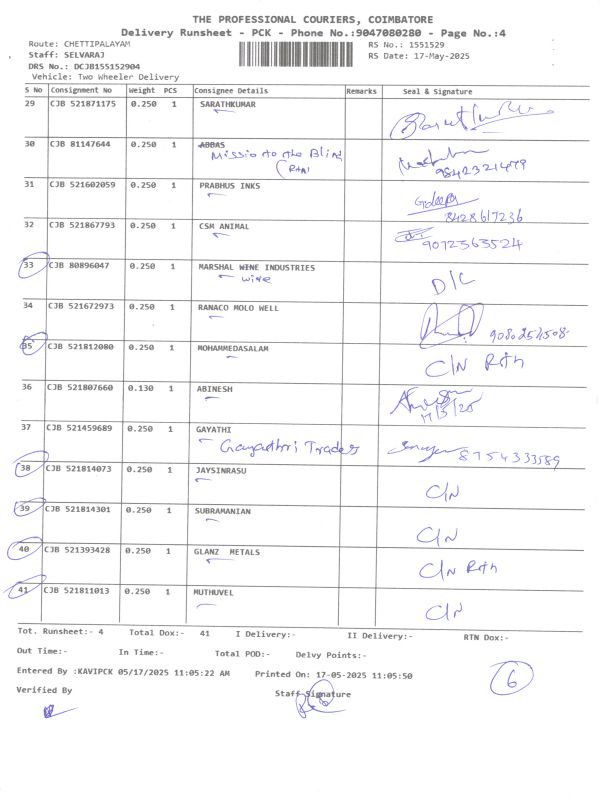 THE PROFESSIONAL COURIERS, COIMBATORE
Delivery Runsheet - PCK - Phone No.:9047080280 - Page No.:4
Route: CHETTIPALAYAM RS No.: 1551529
Staff: SELVARAJ RS Date: 17-May-2025
DRS No.: DCJB155152904
Vehicle: Two Wheeler Delivery
S No Consignment No Weight PCS Consignee Details Remarks Seal & Signature
29 CJB 521871175 0.250 1 SARATHKUMAR
30 CJB 81147644 0.250 1 ABBAS
Missio to the Blind
9842321479
31 CJB 521602059 0.250 1 PRABHUS INKS
8428617236
32 CJB 521867793 0.250 1 CSM ANIMAL
9072363524
33 CJB 80896047 0.250 1 MARSHAL WINE INDUSTRIES
wire D/C
34 CJB 521672973 0.250 1 RANACO MOLO WELL
9080254508
35 CJB 521812080 0.250 1 MOHAMMEDASALAM
C/N Rtn
36 CJB 521807660 0.130 1 ABINESH
17/5/25
37 CJB 521459689 0.250 1 GAYATHI
Gayathri Trades 8754333589
38 CJB 521814073 0.250 1 JAYSINRASU
C/N
39 CJB 521814301 0.250 1 SUBRAMANIAN
C/N
40 CJB 521393428 0.250 1 GLANZ METALS
C/N Rtn
41 CJB 521811013 0.250 1 MUTHUVEL
C/N
Tot. Runsheet:- 4 Total Dox:- 41 I Delivery:- II Delivery:- RTN Dox:-
Out Time:- In Time:- Total POD:- Delvy Points:-
Entered By :KAVIPCK 05/17/2025 11:05:22 AM Printed On: 17-05-2025 11:05:50
6
Verified By Staff Signature